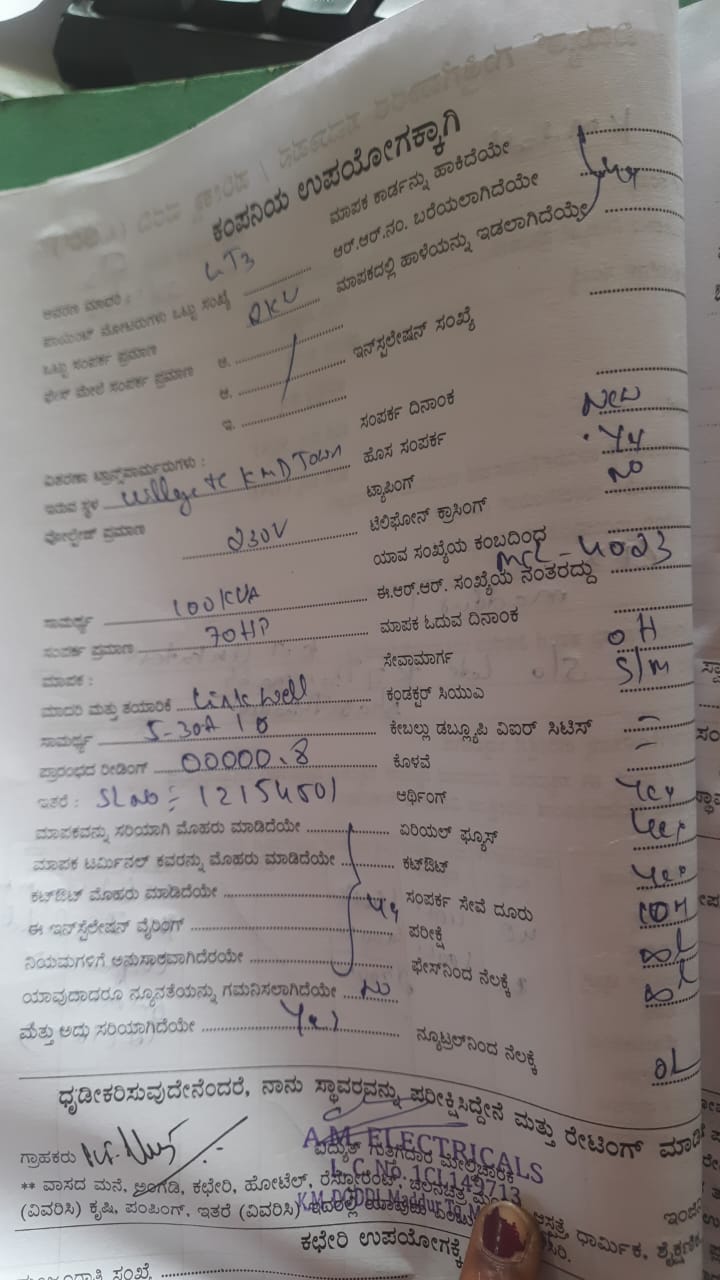 ಕಂಪನಿಯ ಉಪಯೋಗಕ್ಕಾಗಿ
ಮಾಪಕ ಕಾರ್ಡನ್ನು ಹಾಕಿದೆಯೇ
ಆವರಣ ಮಾದರಿ : LT3 ಆರ್.ಆರ್.ನಂ. ಬರೆಯಲಾಗಿದೆಯೇ
ಪಾಯಿಂಟ್ ಮೋಟರುಗಳು ಒಟ್ಟು ಸಂಖ್ಯೆ ಮಾಪಕದಲ್ಲಿ ಹಾಳೆಯನ್ನು ಇಡಲಾಗಿದೆಯೇ
ಒಟ್ಟು ಸಂಪರ್ಕ ಪ್ರಮಾಣ
ಫೇಸ್ ಮೇಲೆ ಸಂಪರ್ಕ ಪ್ರಮಾಣ ಅ. ಇನ್‌ಸ್ಟಲೇಷನ್ ಸಂಖ್ಯೆ
ಆ.
ಇ. ಸಂಪರ್ಕ ದಿನಾಂಕ New
ವಿತರಣಾ ಟ್ರಾನ್ಸ್‌ಫಾರ್ಮರುಗಳು : ಹೊಸ ಸಂಪರ್ಕ Yes
ಇರುವ ಸ್ಥಳ Village tc KMD Town ಟ್ಯಾಪಿಂಗ್ No
ವೋಲ್ಟೇಜ್ ಪ್ರಮಾಣ 230V ಟೆಲಿಫೋನ್ ಕ್ರಾಸಿಂಗ್
ಯಾವ ಸಂಖ್ಯೆಯ ಕಂಬದಿಂದ
ಸಾಮರ್ಥ್ಯ 100KVA ಈ.ಆರ್.ಆರ್. ಸಂಖ್ಯೆಯ ನಂತರದ್ದು MCL-4023
ಸಂಪರ್ಕ ಪ್ರಮಾಣ 70HP ಮಾಪಕ ಓದುವ ದಿನಾಂಕ
ಮಾಪಕ : ಸೇವಾಮಾರ್ಗ OH
ಮಾದರಿ ಮತ್ತು ತಯಾರಿಕೆ Linkwell ಕಂಡಕ್ಟರ್ ಸಿಯುಎ S/m
ಸಾಮರ್ಥ್ಯ 5-30A 1Ø ಕೇಬಲ್ಲು ಡಬ್ಲ್ಯೂಪಿ ವಿಐಆರ್ ಸಿಟಿಸ್ –
ಪ್ರಾರಂಭದ ರೀಡಿಂಗ್ 00000.8 ಕೊಳವೆ –
ಇತರೆ : SL No : 12154501 ಆರ್ಥಿಂಗ್ Yes
ಮಾಪಕವನ್ನು ಸರಿಯಾಗಿ ಮೊಹರು ಮಾಡಿದೆಯೇ ಏರಿಯಲ್ ಫ್ಯೂಸ್ Yes
ಮಾಪಕ ಟರ್ಮಿನಲ್ ಕವರನ್ನು ಮೊಹರು ಮಾಡಿದೆಯೇ ಕಟ್‌ಔಟ್ Yes
ಕಟ್‌ಔಟ್ ಮೊಹರು ಮಾಡಿದೆಯೇ Yes ಸಂಪರ್ಕ ಸೇವೆ ದೂರು 10M
ಈ ಇನ್‌ಸ್ಟಲೇಷನ್ ವೈರಿಂಗ್ ಪರೀಕ್ಷೆ
ನಿಯಮಗಳಿಗೆ ಅನುಸಾರವಾಗಿದೆರಯೇ ಫೇಸ್‌ನಿಂದ ನೆಲಕ್ಕೆ
ಯಾವುದಾದರೂ ನ್ಯೂನತೆಯನ್ನು ಗಮನಿಸಲಾಗಿದೆಯೇ No
ಮತ್ತು ಅದು ಸರಿಯಾಗಿದೆಯೇ Yes ನ್ಯೂಟ್ರಲ್‌ನಿಂದ ನೆಲಕ್ಕೆ
ಧೃಡೀಕರಿಸುವುದೇನೆಂದರೆ, ನಾನು ಸ್ಥಾವರವನ್ನು ಪರೀಕ್ಷಿಸಿದ್ದೇನೆ ಮತ್ತು ರೇಟಿಂಗ್
ಗ್ರಾಹಕರು ವಿದ್ಯುತ್ ಗುತ್ತಿಗೆದಾರ ಮೇಲ್ವಿಚಾರಕ
A.M. ELECTRICALS
L.C.No. 1CL149713
K.M.DODDI, Maddur Tq
** ವಾಸದ ಮನೆ, ಅಂಗಡಿ, ಕಛೇರಿ, ಹೋಟೆಲ್, ರೆಸ್ಟೋರೆಂಟ್, ಧಾರ್ಮಿಕ,
(ವಿವರಿಸಿ) ಕೃಷಿ, ಪಂಪಿಂಗ್, ಇತರೆ (ವಿವರಿಸಿ)
ಕಛೇರಿ ಉಪಯೋಗಕ್ಕೆ